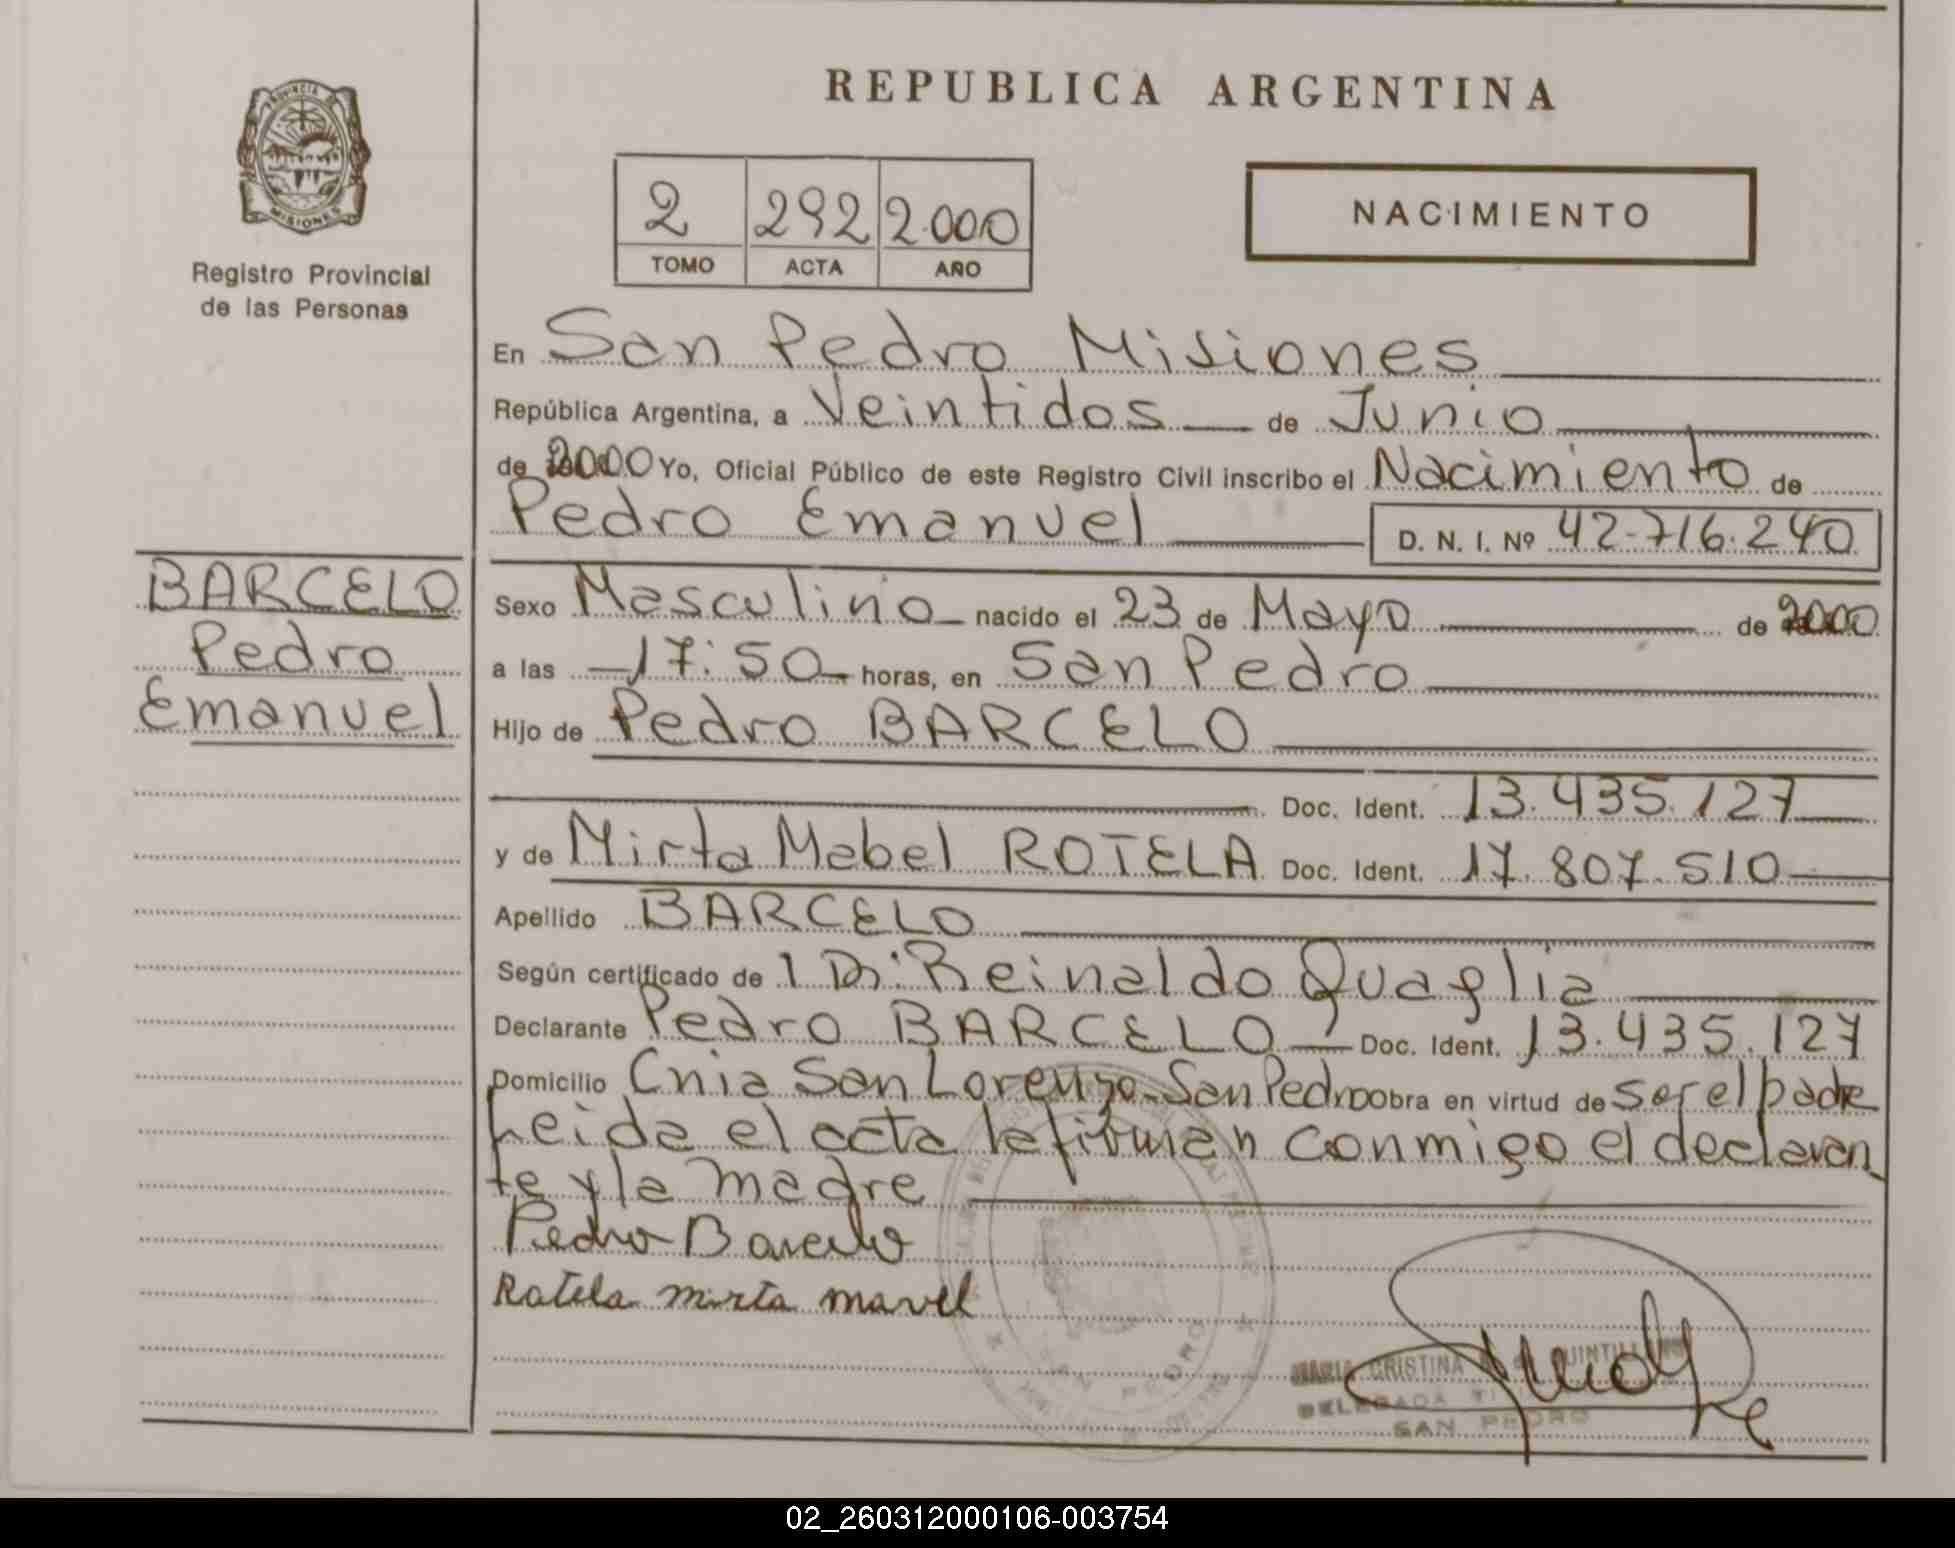 REPUBLICA ARGENTINA
PROVINCIA DE
MISIONES
Registro Provincial
de las Personas
2 292 2.000
TOMO ACTA AÑO
NACIMIENTO
En San Pedro Misiones
República Argentina, a Veintidos de Junio
de 2000 Yo, Oficial Público de este Registro Civil inscribo el Nacimiento de
Pedro Emanuel D. N. I. Nº 42.716.240
BARCELO
Pedro
Emanuel
Sexo Masculino nacido el 23 de Mayo de 2000
a las 17:50 horas, en San Pedro
Hijo de Pedro BARCELO
Doc. Ident. 13.435.127
y de Mirta Mabel ROTELA Doc. Ident. 17.807.510
Apellido BARCELO
Según certificado de 1 Dr: Reinaldo Quaglia
Declarante Pedro BARCELO Doc. Ident. 13.435.127
Domicilio Cnia San Lorenzo-San Pedro Obra en virtud de ser el padre
Leida el acta la firman conmigo el declaran-
te y la madre
Pedro Barcelo
Rotela mirta mavel
MARIA CRISTINA
DELEGADA
SAN PEDRO
SAN PEDRO
02_260312000106-003754